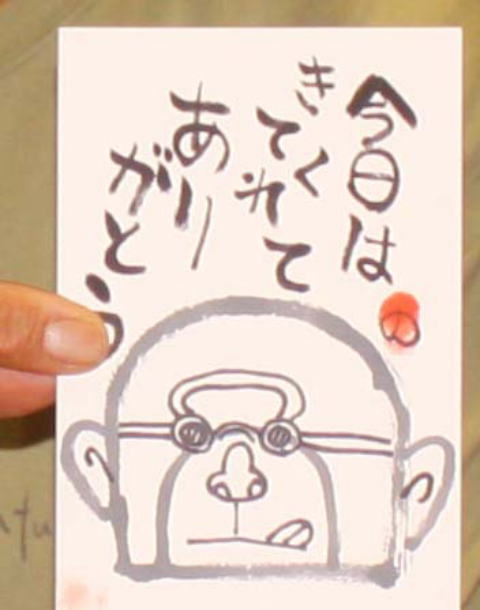 今日は
きてくれて
ありがとう